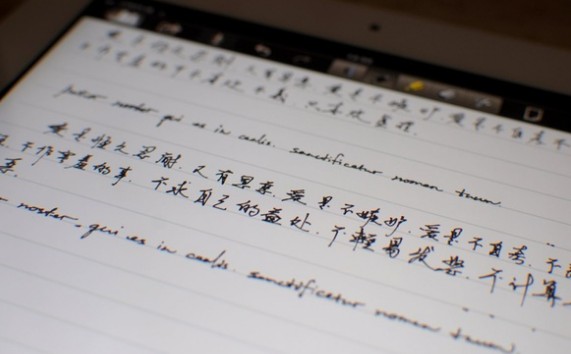 爱是恒久忍耐 又有恩慈 爱是不嫉妒 爱是不自夸 不
不作害羞的事 不求自己的益处 不轻易发怒 不计算人
pater noster qui es in caelis. sanctificetur nomen tuum.
爱是恒久忍耐. 又有恩慈. 爱是不嫉妒. 爱是不自夸. 不
不作害羞的事. 不求自己的益处. 不轻易发怒. 不计算人
noster. qui es in caelis. sanctificetur nomen tuum